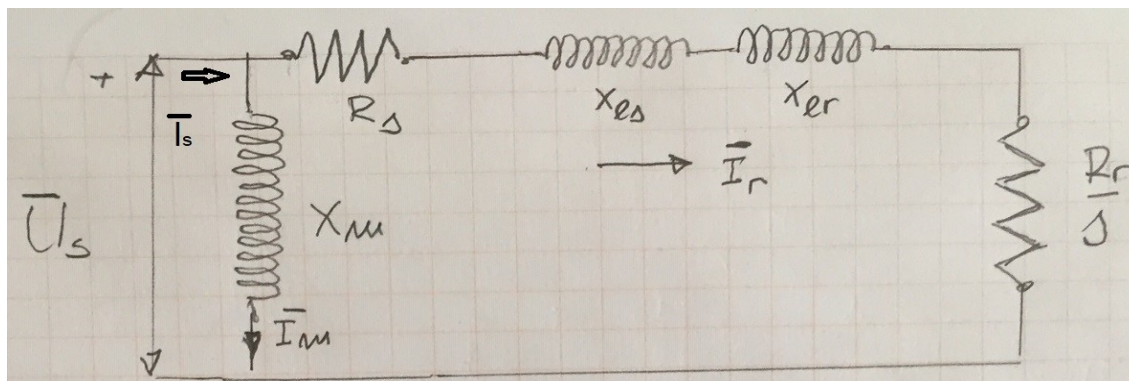 +
I̅s
Rs
xes
xer
I̅r
Rr
s
U̅s
Xm
I̅m